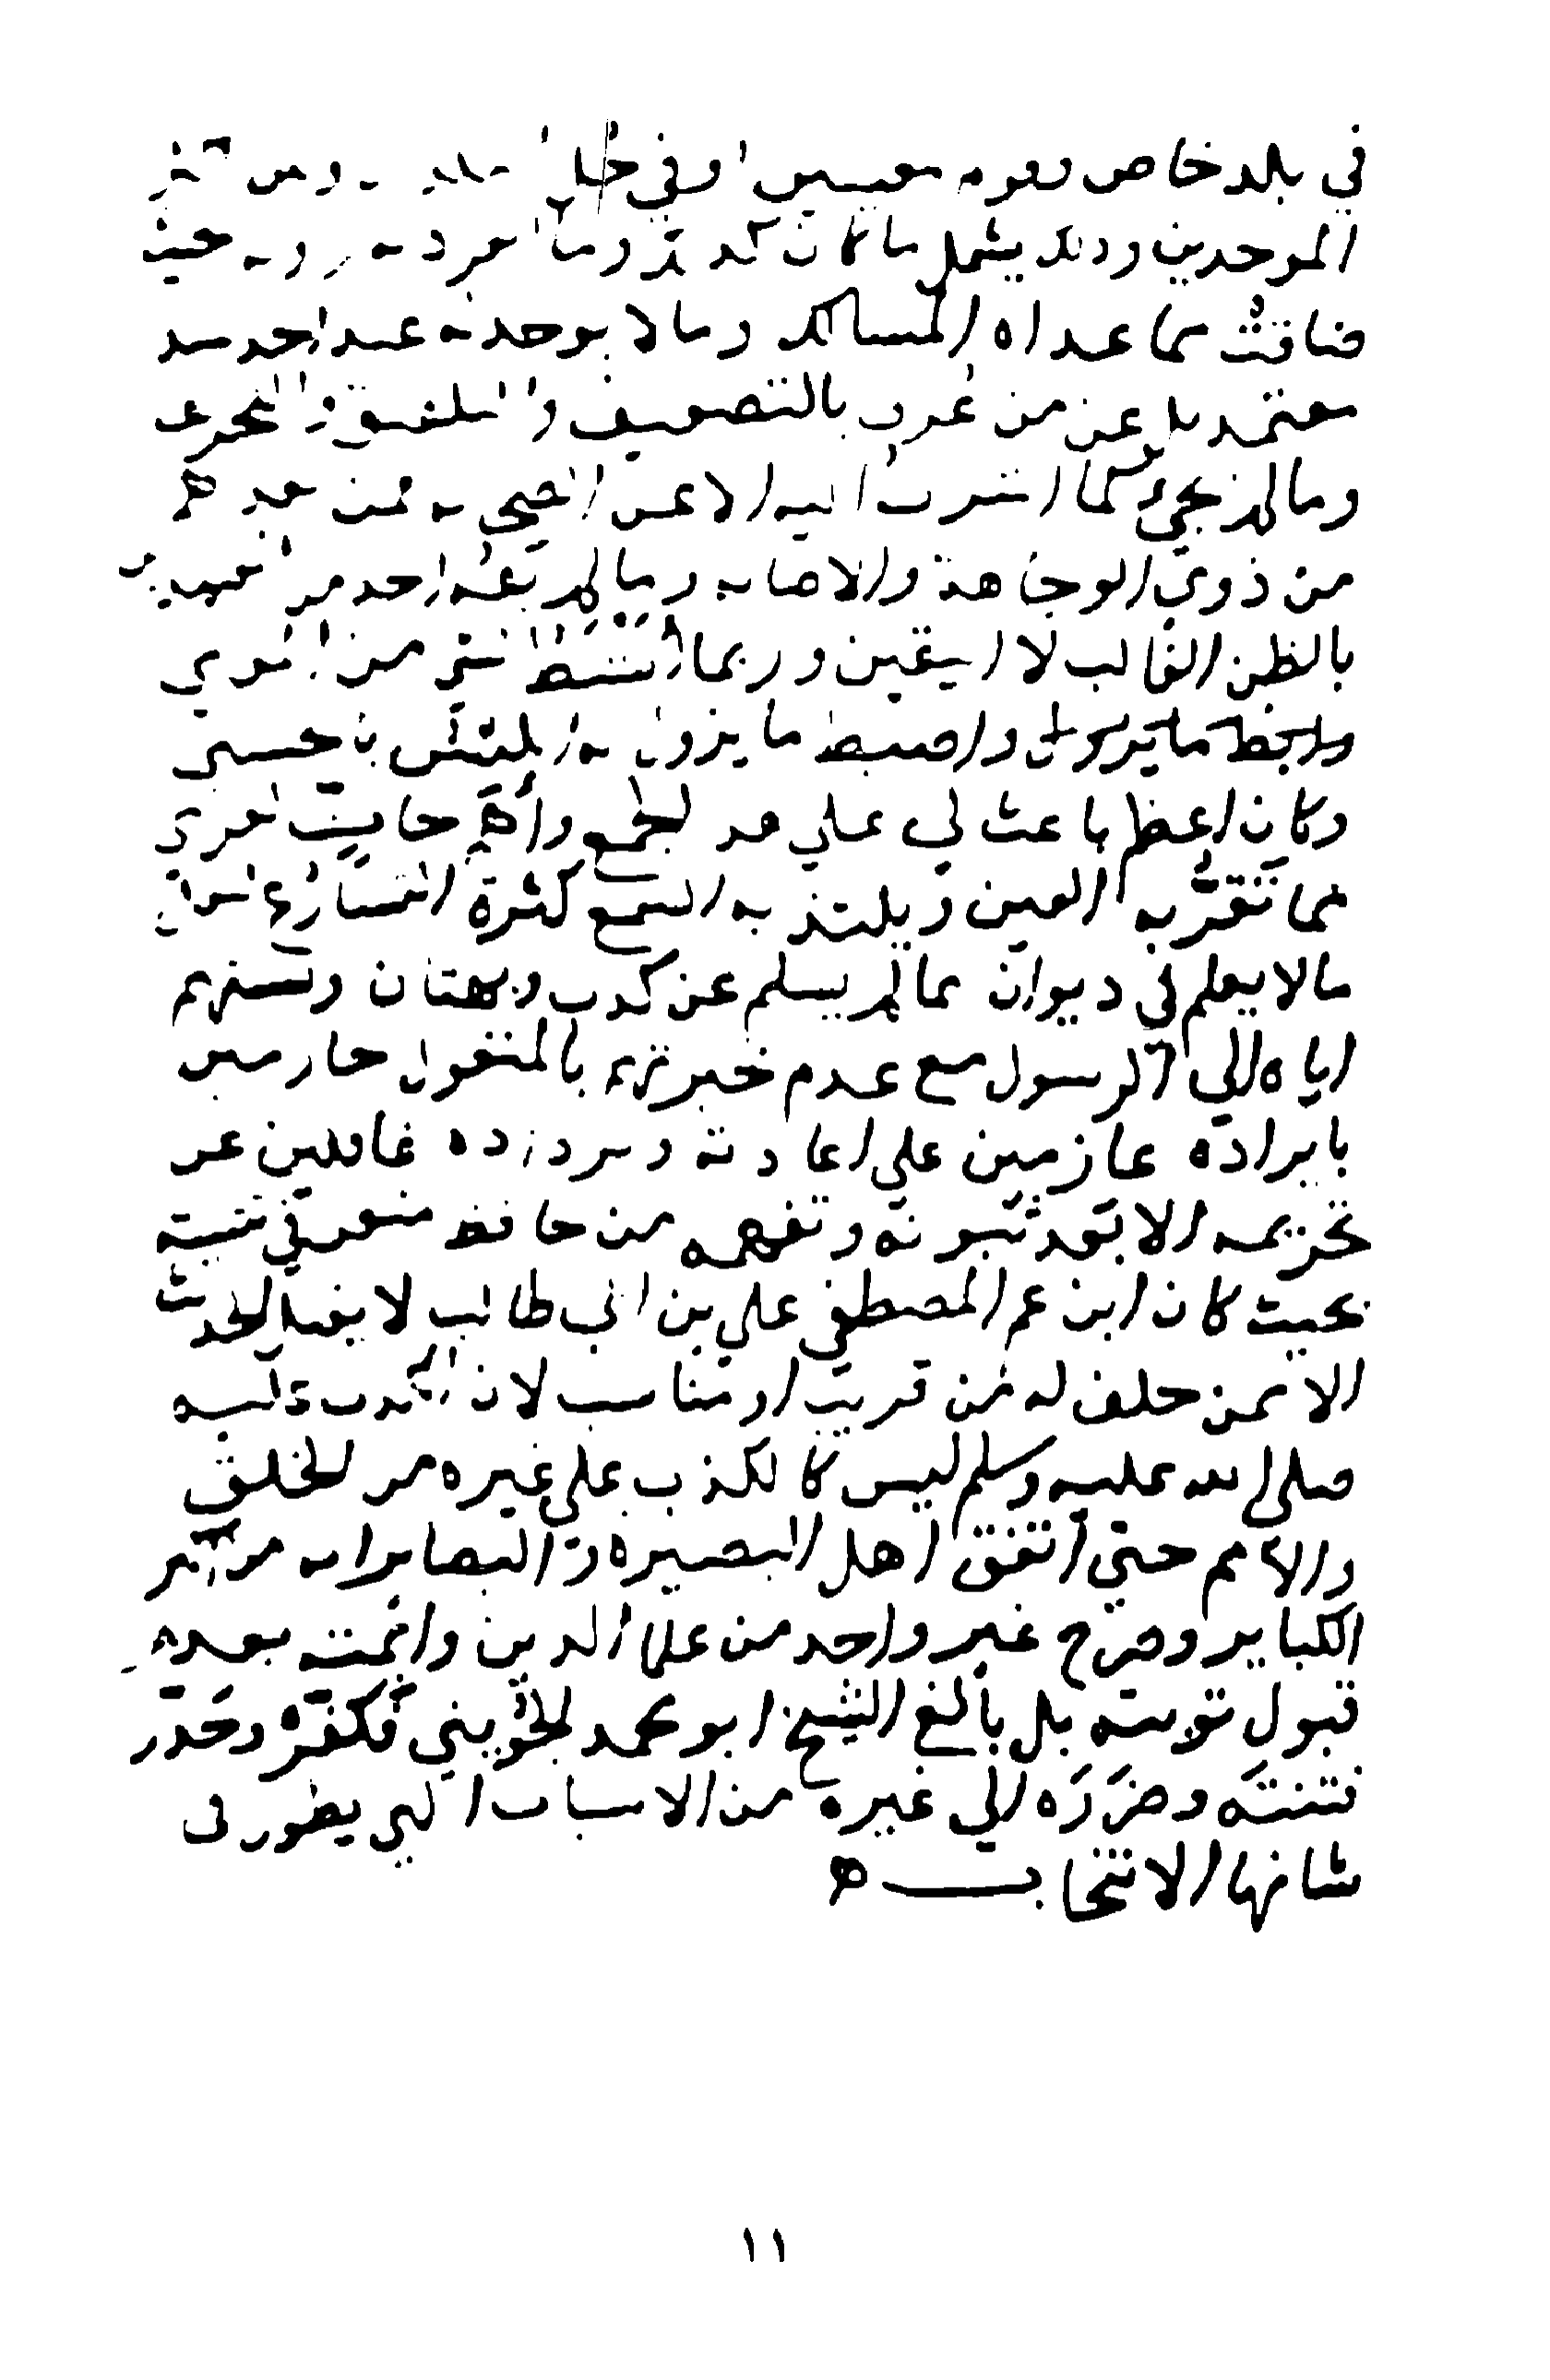 في بلد خاص وقوم معينين او في
الموحدين وذلك يشمل ما كان كذلك وما حين
ضاقت مما عداه المسالك وما لا يوجد له عند احد سند
معتمد بل عن من عرف بالتضعيف والتلفيق والتحري
وما لم يجئ كما اشرت اليه الا عن الصحابة فمن بعدهم
من ذوي الوجاهة والاصابة وما لم يفه احد من
بالظن الغالب لا اليقين وربما انشط لشيء من المروي
واضبط ما يزول به
وكان اعظم باعث لي على هذا الجمع وأهم حاث لعزمي
فيما تقر به العين ويلتذ به السمع كثرة التسارع لنقل
ما لا يعلم في ديوان مما لم يسلم عن كذب وبهتان ونسبتهم
اياه الى الرسول مع عدم خبرتهم بالمنقول جازمين
بايراده عازمين على اعادته وترداده غافلين عن
تحريمه الا بعد ثبوته وتفهمه من حافظ متقن في تثبته
بحيث كان ابن عم المصطفى علي بن ابي طالب لا يقبل الحديث
الا ممن حلف له من قريب او مناسب لان الكذب عليه
صلى الله عليه وسلم ليس كالكذب على غيره من الخلق
والامم حتى اتفق اهل البصيرة والبصاير انه من اكبر
الكباير وصرح غير واحد من علما الدين وائمته بعدم
قبول توبته بل بالغ الشيخ ابو محمد الجويني فكفره وحذر
فتنته وضرره الى غيره من الاسباب التي يطول في
شانها الانتخاب ه
١١